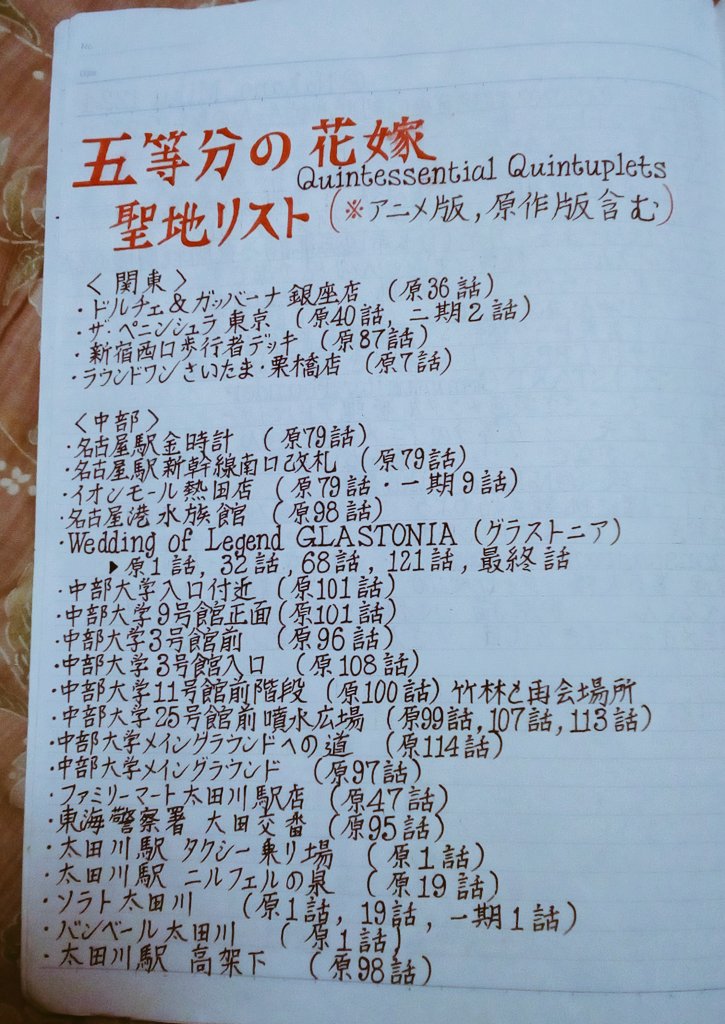 五等分の花嫁
Quintessential Quintuplets
聖地リスト(※アニメ版,原作版含む)
<関東>
・ドルチェ&ガッバーナ 銀座店 (原36話)
・ザ・ペニンシュラ 東京 (原40話, 二期2話)
・新宿西口歩行者デッキ (原87話)
・ラウンドワンさいたま・栗橋店 (原7話)
<中部>
・名古屋駅金時計 (原79話)
・名古屋駅新幹線南口改札 (原79話)
・イオンモール熱田店 (原79話・一期9話)
・名古屋港水族館 (原98話)
・Wedding of Legend GLASTONIA (グラストニア)
▶原1話, 32話, 68話, 121話, 最終話
・中部大学入口付近 (原101話)
・中部大学9号館正面(原101話)
・中部大学3号館前 (原96話)
・中部大学3号館入口 (原108話)
・中部大学11号館前階段 (原100話) 竹林と再会場所
・中部大学25号館前噴水広場 (原99話,107話,113話)
・中部大学メイングラウンドへの道 (原114話)
・中部大学メイングラウンド (原97話)
・ファミリーマート太田川駅店 (原47話)
・東海警察署 大田交番 (原95話)
・太田川駅 タクシー乗り場 (原1話)
・太田川駅 ニルフェルの泉 (原19話)
・ソラト太田川 (原1話, 19話, 一期1話)
・バンベール太田川 (原1話)
・太田川駅 高架下 (原98話)